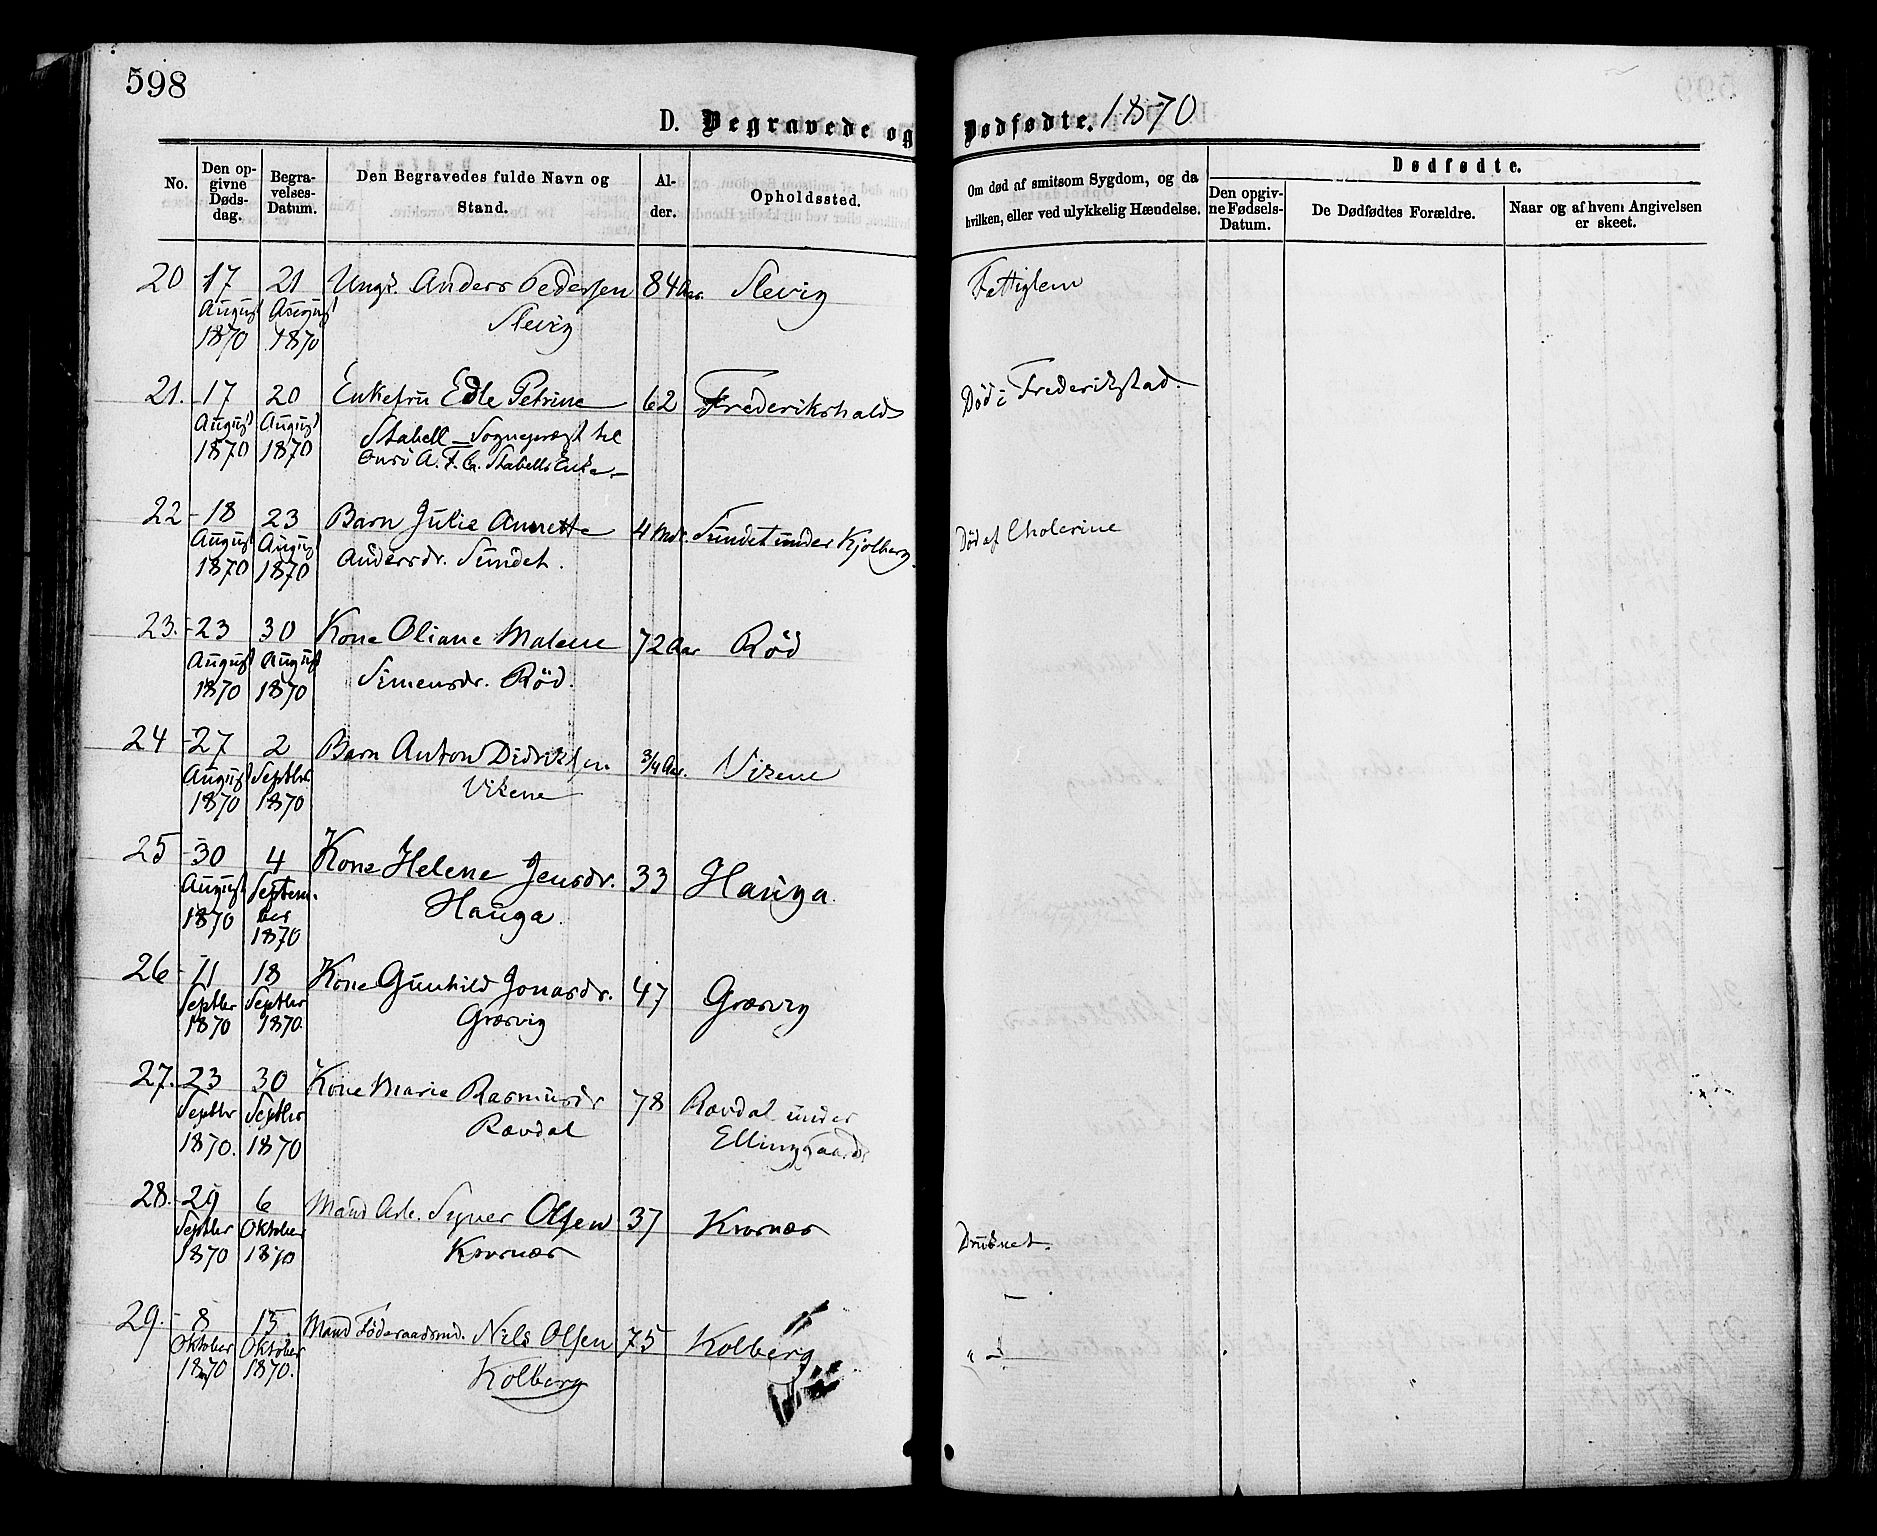 598
D. Begravede og Dødfødte. 1870
No.
Den opgivne Dødsdag.
Begravelses-Datum.
Den Begravedes fulde Navn og Stand.
Alder.
Opholdssted.
Om død af smitsom Sygdom, og da hvilken, eller ved ulykkelig Hændelse.
Dødfødte.
Den opgivne Fødsels-Datum.
De Dødfødtes Forældre.
Naar og af hvem Angivelsen er skeet.
20 17 21 Ungk. Anders Pedersen 84 Aar. Slevig Fattiglem
August August Slevig
1870 1870
21. 17 20 Enkefru Edle Petrine 62 Frederikshald Død i Frederikstad.
August August Stabell - Sognepræst til
1870 1870 Onsö A. F. G. Stabells Enke
22 18 23 Barn Julie Annette 4 Mdr. Sundet under Kjølberg. Død af Cholerine
August August Andersdr. Sundet.
1870 1870
23. 23 30 Kone Oliane Malene 72 Aar Rød
August August Simensdr. Rød.
1870 1870
24 27 2 Barn Anton Didriksen 3/4 Aar. Vikene
August Septbr Vikene
1870 1870
25 30 4 Kone Helene Jensdr. 33 Hauga.
August Septem- Hauga.
1870 ber
1870
26 11 18 Kone Gunhild Jonasdr. 47 Græsvig
Septbr Septbr Græsvig
1870 1870.
27. 23 30 Kone Marie Rasmusdr 78 Rævdal under
Septbr Septbr Rævdal Ellinggaard
1870. 1870
28. 29 6 Mand Arb. Olsen 37 Kvernæs Druknet.
Septbr Oktober Kvernæs
1870 1870
29. 8 15. Mand Föderaadsmd. Nils Olsen 75 Kolberg
Oktober Oktober Kolberg
1870 1870.